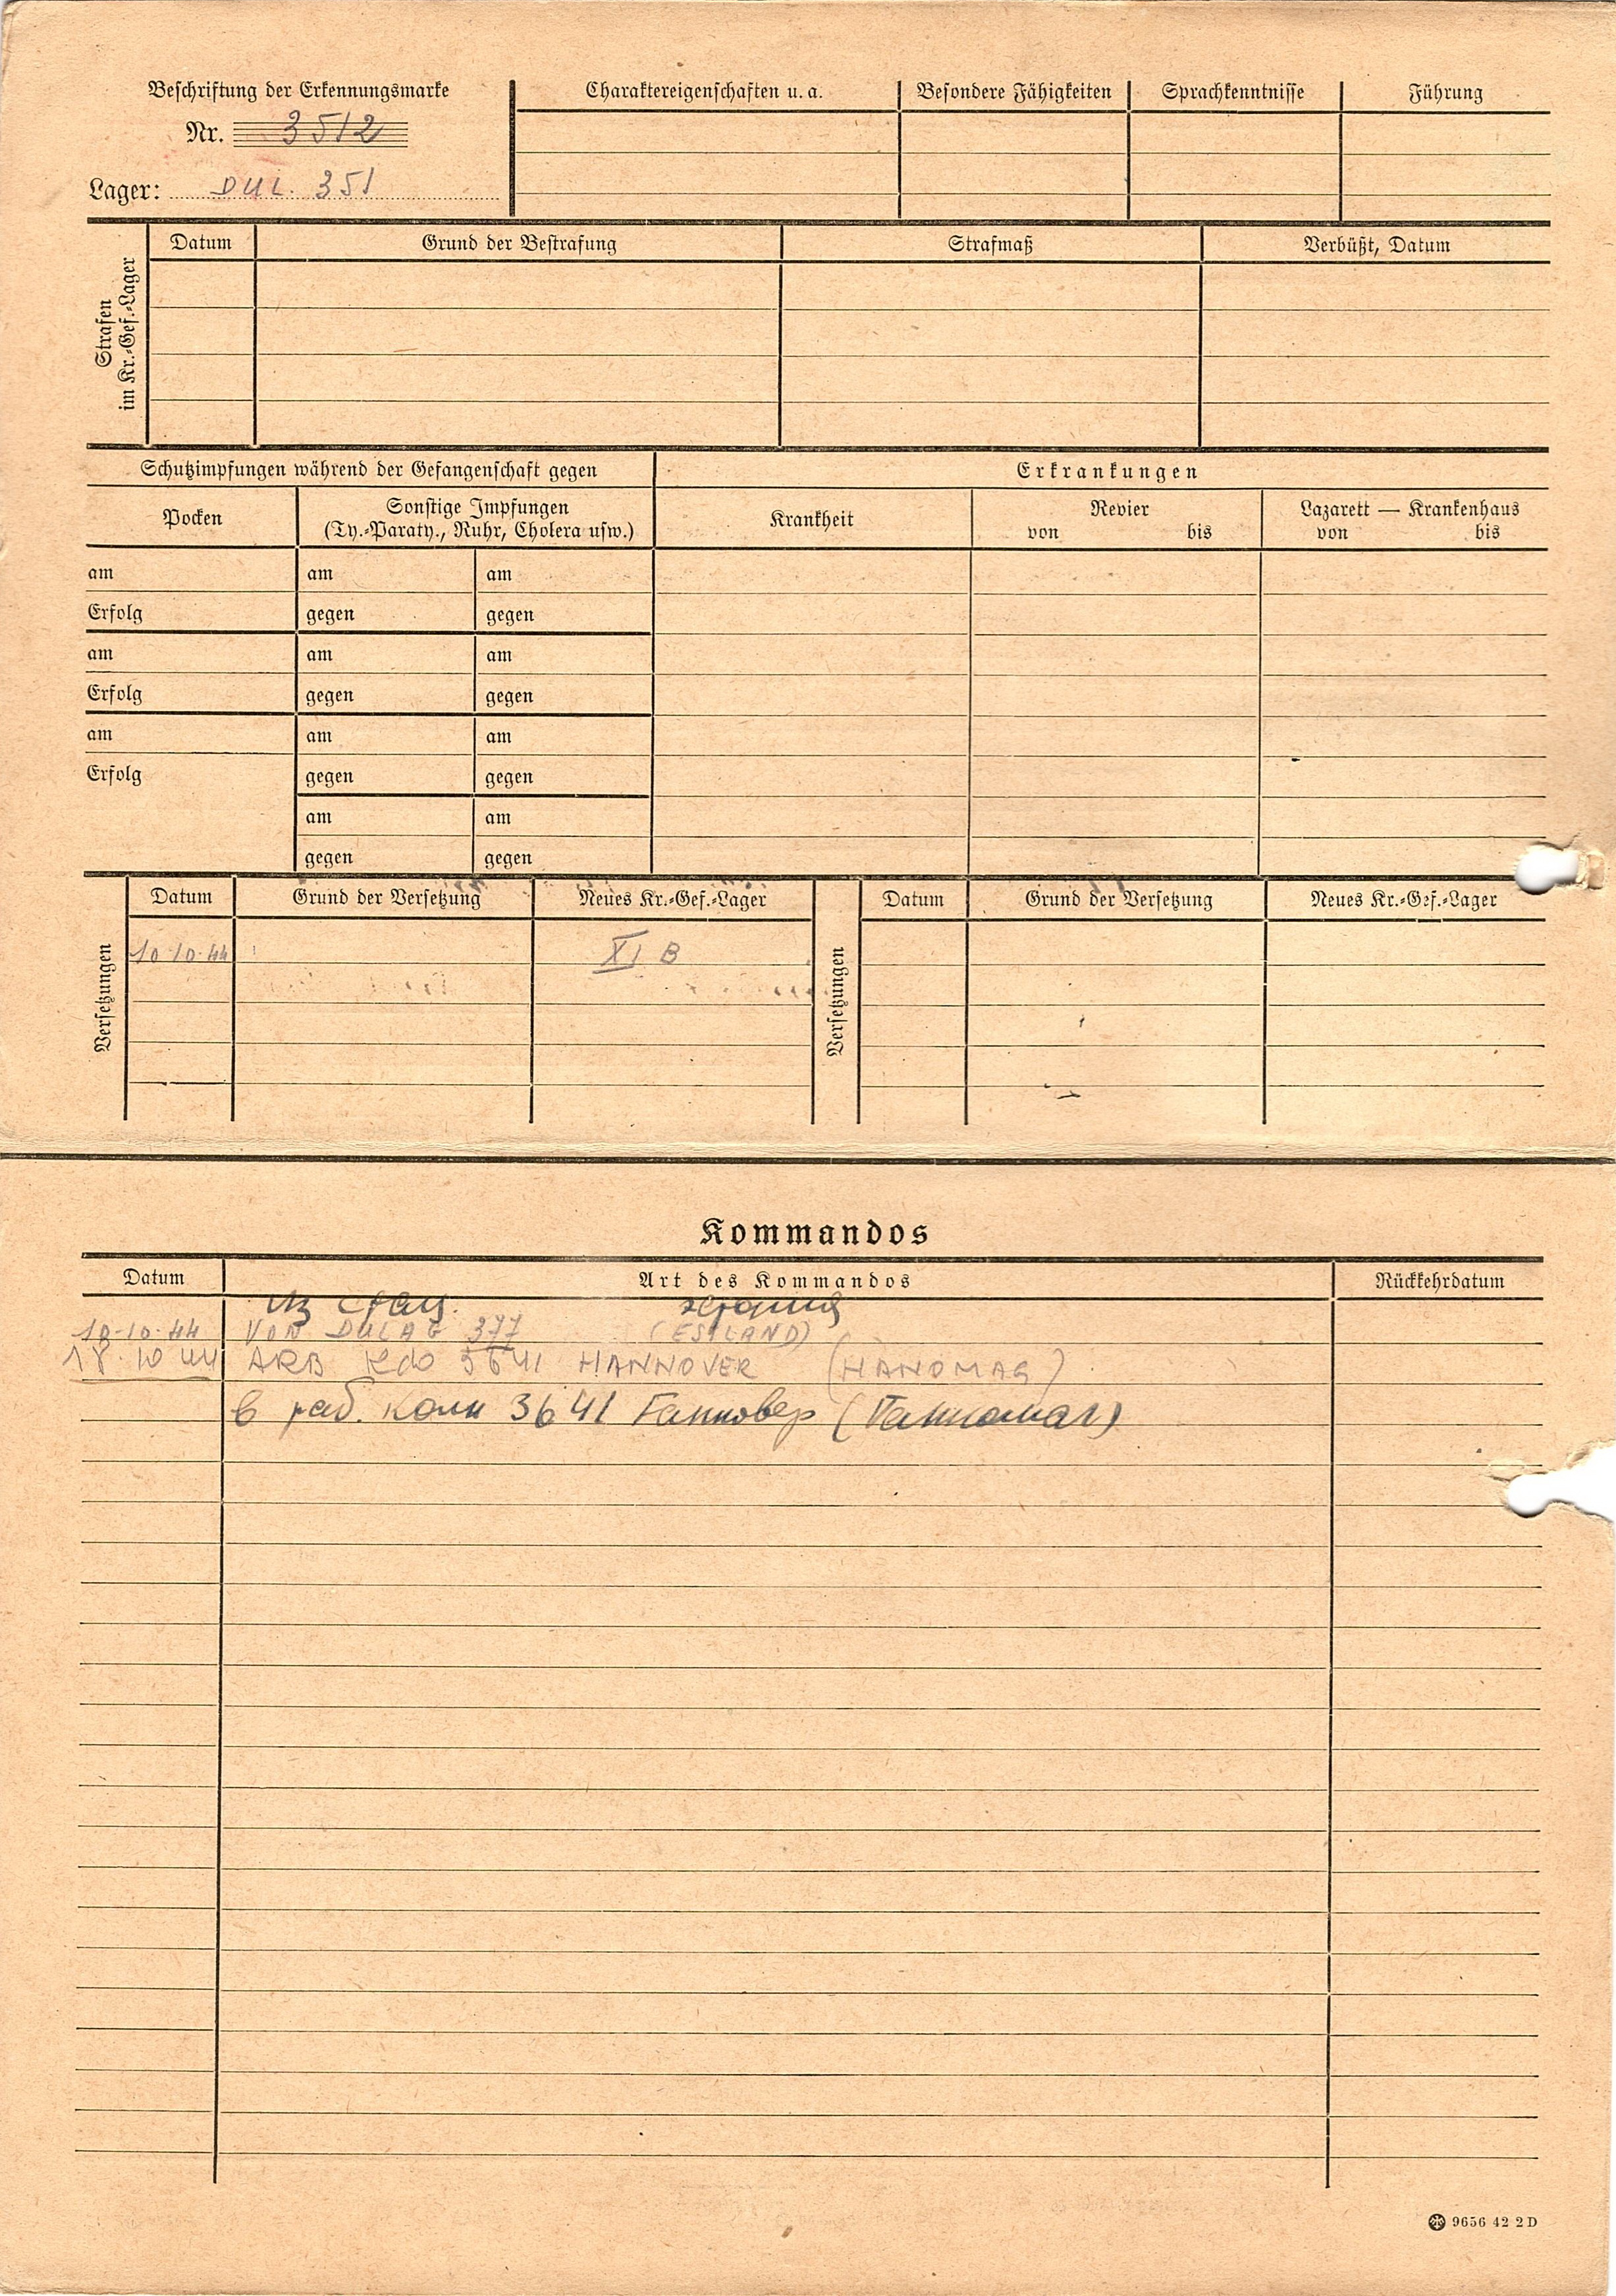 Beschriftung der Erkennungsmarke
Nr. 3512
Lager: DUL. 351
Charaktereigenschaften u. a. Besondere Fähigkeiten Sprachkenntnisse Führung
Strafen im Kr.-Gef.-Lager
Datum Grund der Bestrafung Strafmaß Verbüßt, Datum
Schutzimpfungen während der Gefangenschaft gegen
Erkrankungen
Pocken
Sonstige Impfungen
(Ty.-Paraty., Ruhr, Cholera usw.)
Krankheit
Revier
von bis
Lazarett — Krankenhaus
von bis
am am am
Erfolg gegen gegen
am am am
Erfolg gegen gegen
am am am
Erfolg gegen gegen
am am
gegen gegen
Versetzungen
Datum Grund der Versetzung Neues Kr.-Gef.-Lager
10.10.44 XI B
Versetzungen
Datum Grund der Versetzung Neues Kr.-Gef.-Lager
Kommandos
Datum Art des Kommandos Rückkehrdatum
Из
10.10.44 VON DULAG 377 (ESTLAND)
18.10 44 ARB Kdo 3641 HANNOVER (HANOMAG)
в раб. ком 3641 Ганновер (Ганномаг)
9656 42 2 D